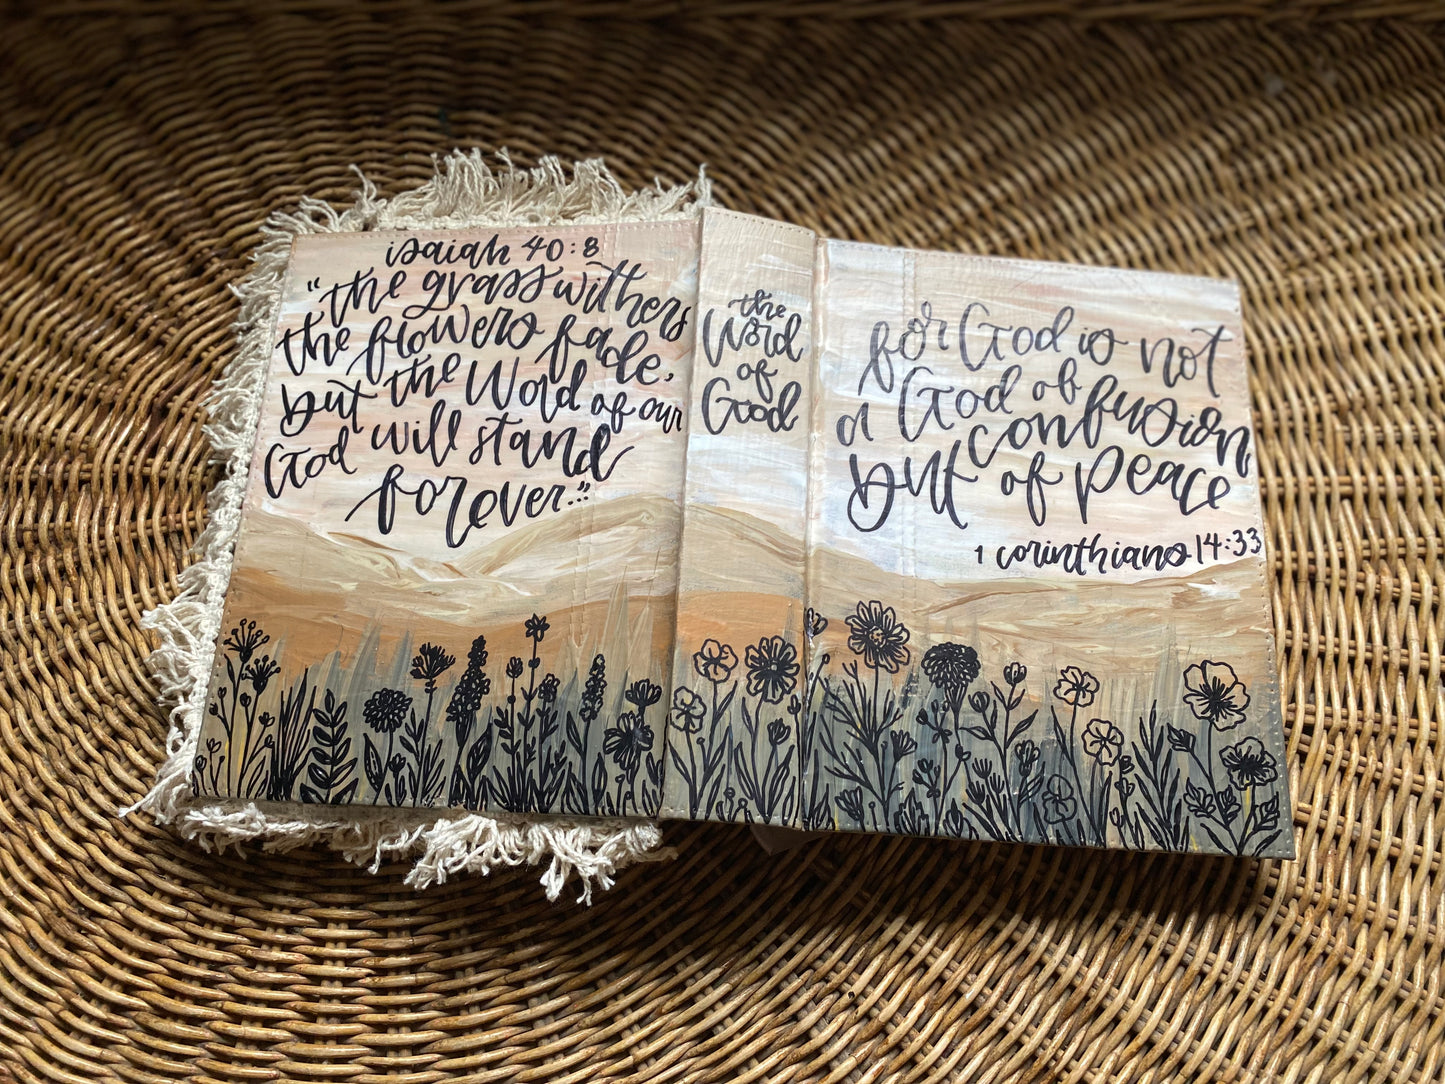 isaiah 40:8
"the grass withers
the flowers fade,
but the Word of our
God will stand
forever."
the
Word
of
God
for God is not
a God of confusion,
but of peace
1 corinthians 14:33